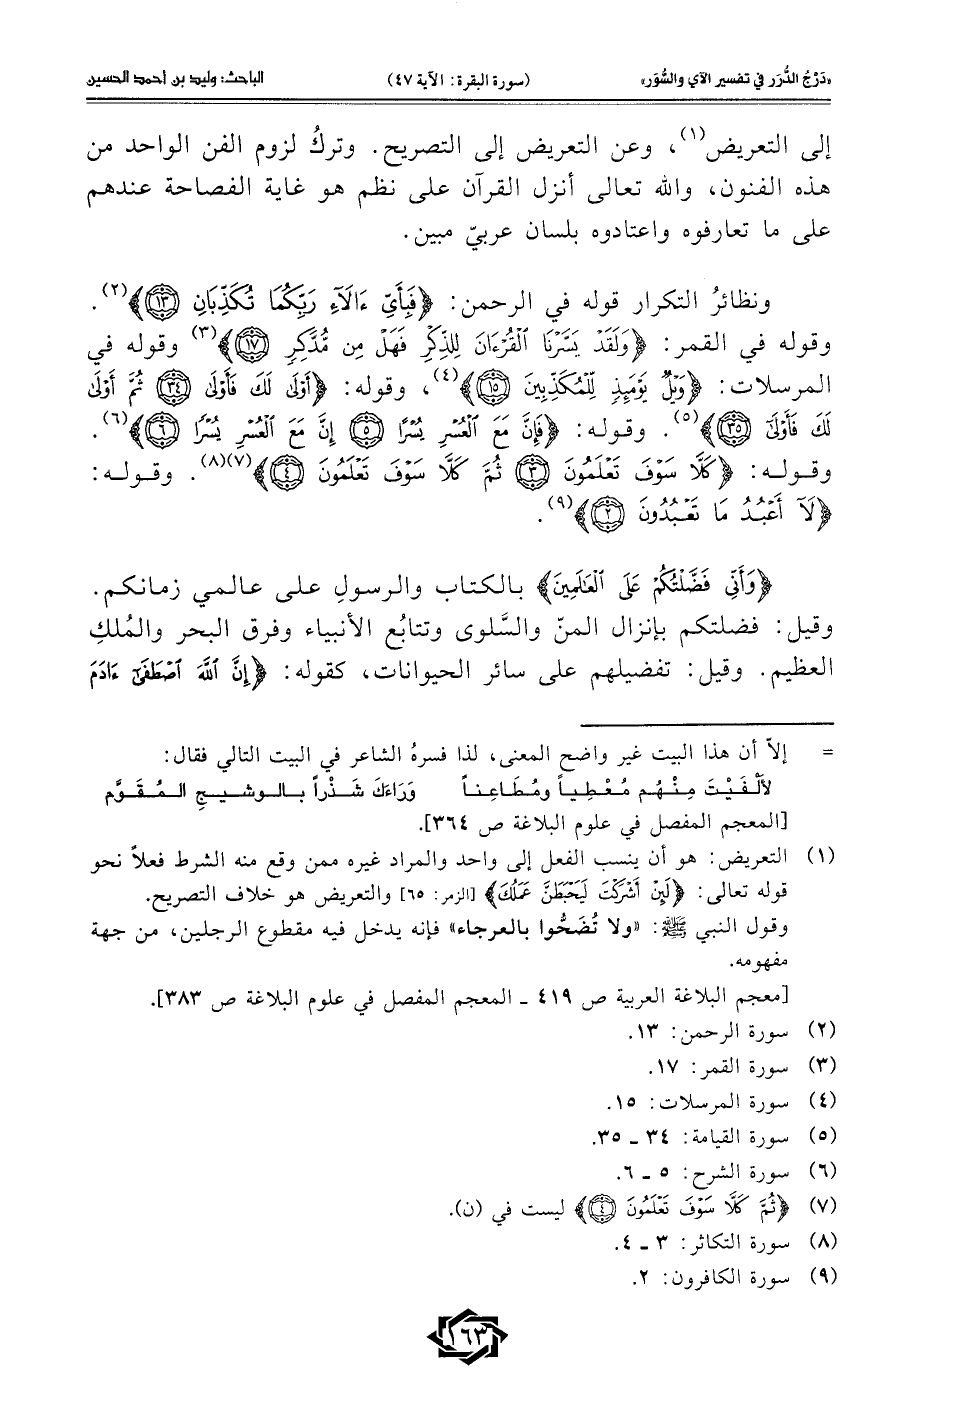 «دَرْجُ الدُّرَر في تفسير الآي والسُّوَر» (سورة البقرة: الآية ٤٧) الباحث: وليد بن أحمد الحسين
إلى التعريض(١)، وعن التعريض إلى التصريح. وتركُ لزوم الفن الواحد من
هذه الفنون، والله تعالى أنزل القرآن على نظم هو غاية الفصاحة عندهم
على ما تعارفوه واعتادوه بلسان عربيّ مبين.
ونظائرُ التكرار قوله في الرحمن: ﴿فَبِأَيِّ ءَالَآءِ رَبِّكُمَا تُكَذِّبَانِ ١٣﴾(٢).
وقوله في القمر: ﴿وَلَقَدْ يَسَّرْنَا ٱلْقُرْءَانَ لِلذِّكْرِ فَهَلْ مِن مُّدَّكِرٍ ١٧﴾(٣) وقوله في
المرسلات: ﴿وَيْلٌ يَوْمَئِذٍ لِّلْمُكَذِّبِينَ ١٥﴾(٤)، وقوله: ﴿أَوْلَىٰ لَكَ فَأَوْلَىٰ ٣٤ ثُمَّ أَوْلَىٰ
لَكَ فَأَوْلَىٰٓ ٣٥﴾(٥). وقوله: ﴿فَإِنَّ مَعَ ٱلْعُسْرِ يُسْرًا ٥ إِنَّ مَعَ ٱلْعُسْرِ يُسْرًا ٦﴾(٦).
وقوله: ﴿كَلَّا سَوْفَ تَعْلَمُونَ ٣ ثُمَّ كَلَّا سَوْفَ تَعْلَمُونَ ٤﴾(٧)(٨). وقوله:
﴿لَآ أَعْبُدُ مَا تَعْبُدُونَ ٢﴾(٩).
﴿وَأَنِّي فَضَّلْتُكُمْ عَلَى ٱلْعَالَمِينَ﴾ بالكتاب والرسولِ على عالمي زمانكم.
وقيل: فضلتكم بإنزال المنّ والسَّلوى وتتابُع الأنبياء وفرق البحر والمُلكِ
العظيم. وقيل: تفضيلهم على سائر الحيوانات، كقوله: ﴿إِنَّ ٱللَّهَ ٱصْطَفَىٰٓ ءَادَمَ
= إلاّ أن هذا البيت غير واضح المعنى، لذا فسرهُ الشاعر في البيت التالي فقال:
لأَلْفَيْتَ مِنْهُم مُعْطِياً ومُطَاعِناً وَرَاءَكَ شَذْراً بالوشيجِ المُقَوَّم
[المعجم المفصل في علوم البلاغة ص ٣٦٤].
(١) التعريض: هو أن ينسب الفعل إلى واحد والمراد غيره ممن وقع منه الشرط فعلاً نحو
قوله تعالى: ﴿لَئِنْ أَشْرَكْتَ لَيَحْبَطَنَّ عَمَلُكَ﴾ [الزمر: ٦٥] والتعريض هو خلاف التصريح.
وقول النبي ﷺ: «ولا تُضَحُّوا بالعرجاء» فإنه يدخل فيه مقطوع الرجلين، من جهة
مفهومه.
[معجم البلاغة العربية ص ٤١٩ ـ المعجم المفصل في علوم البلاغة ص ٣٨٣].
(٢) سورة الرحمن: ١٣.
(٣) سورة القمر: ١٧.
(٤) سورة المرسلات: ١٥.
(٥) سورة القيامة: ٣٤ ـ ٣٥.
(٦) سورة الشرح: ٥ ـ ٦.
(٧) ﴿ثُمَّ كَلَّا سَوْفَ تَعْلَمُونَ ٤﴾ ليست في (ن).
(٨) سورة التكاثر: ٣ ـ ٤.
(٩) سورة الكافرون: ٢.
١٦٣